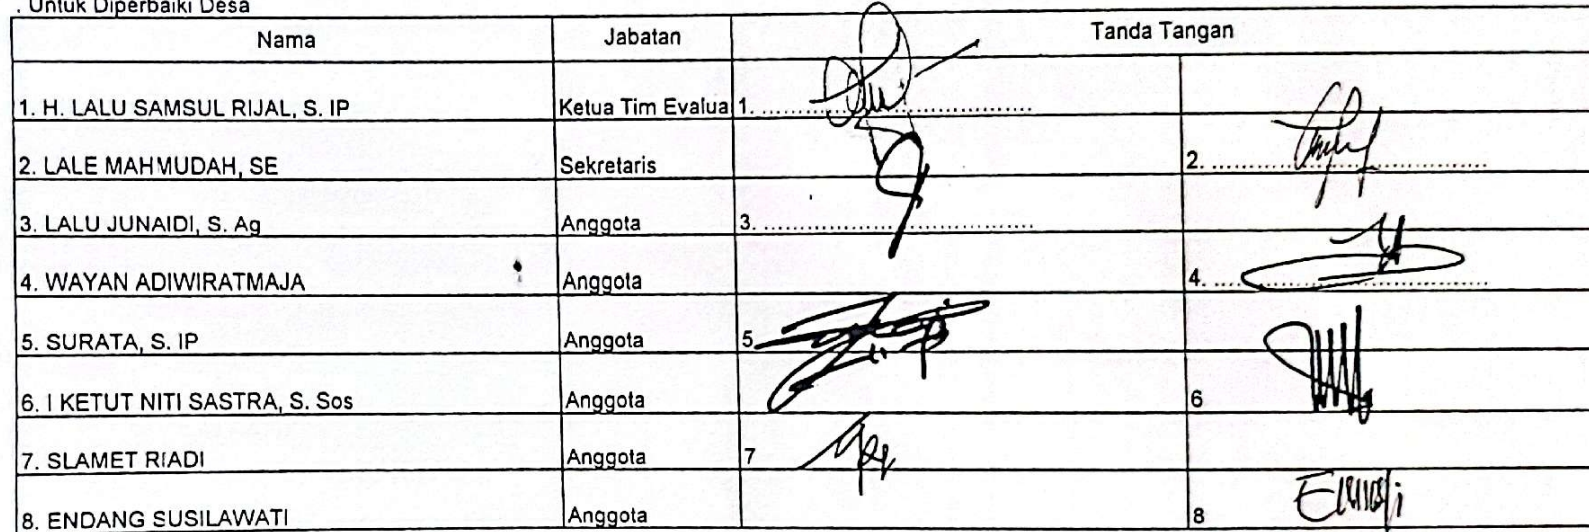 . Untuk Diperbaiki Desa
Nama Jabatan Tanda Tangan
1. H. LALU SAMSUL RIJAL, S. IP Ketua Tim Evalua 1. ..........................................
2. LALE MAHMUDAH, SE Sekretaris 2. ..........................................
3. LALU JUNAIDI, S. Ag Anggota 3. ..........................................
4. WAYAN ADIWIRATMAJA Anggota 4. ..........................................
5. SURATA, S. IP Anggota 5
6. I KETUT NITI SASTRA, S. Sos Anggota 6
7. SLAMET RIADI Anggota 7
8. ENDANG SUSILAWATI Anggota 8